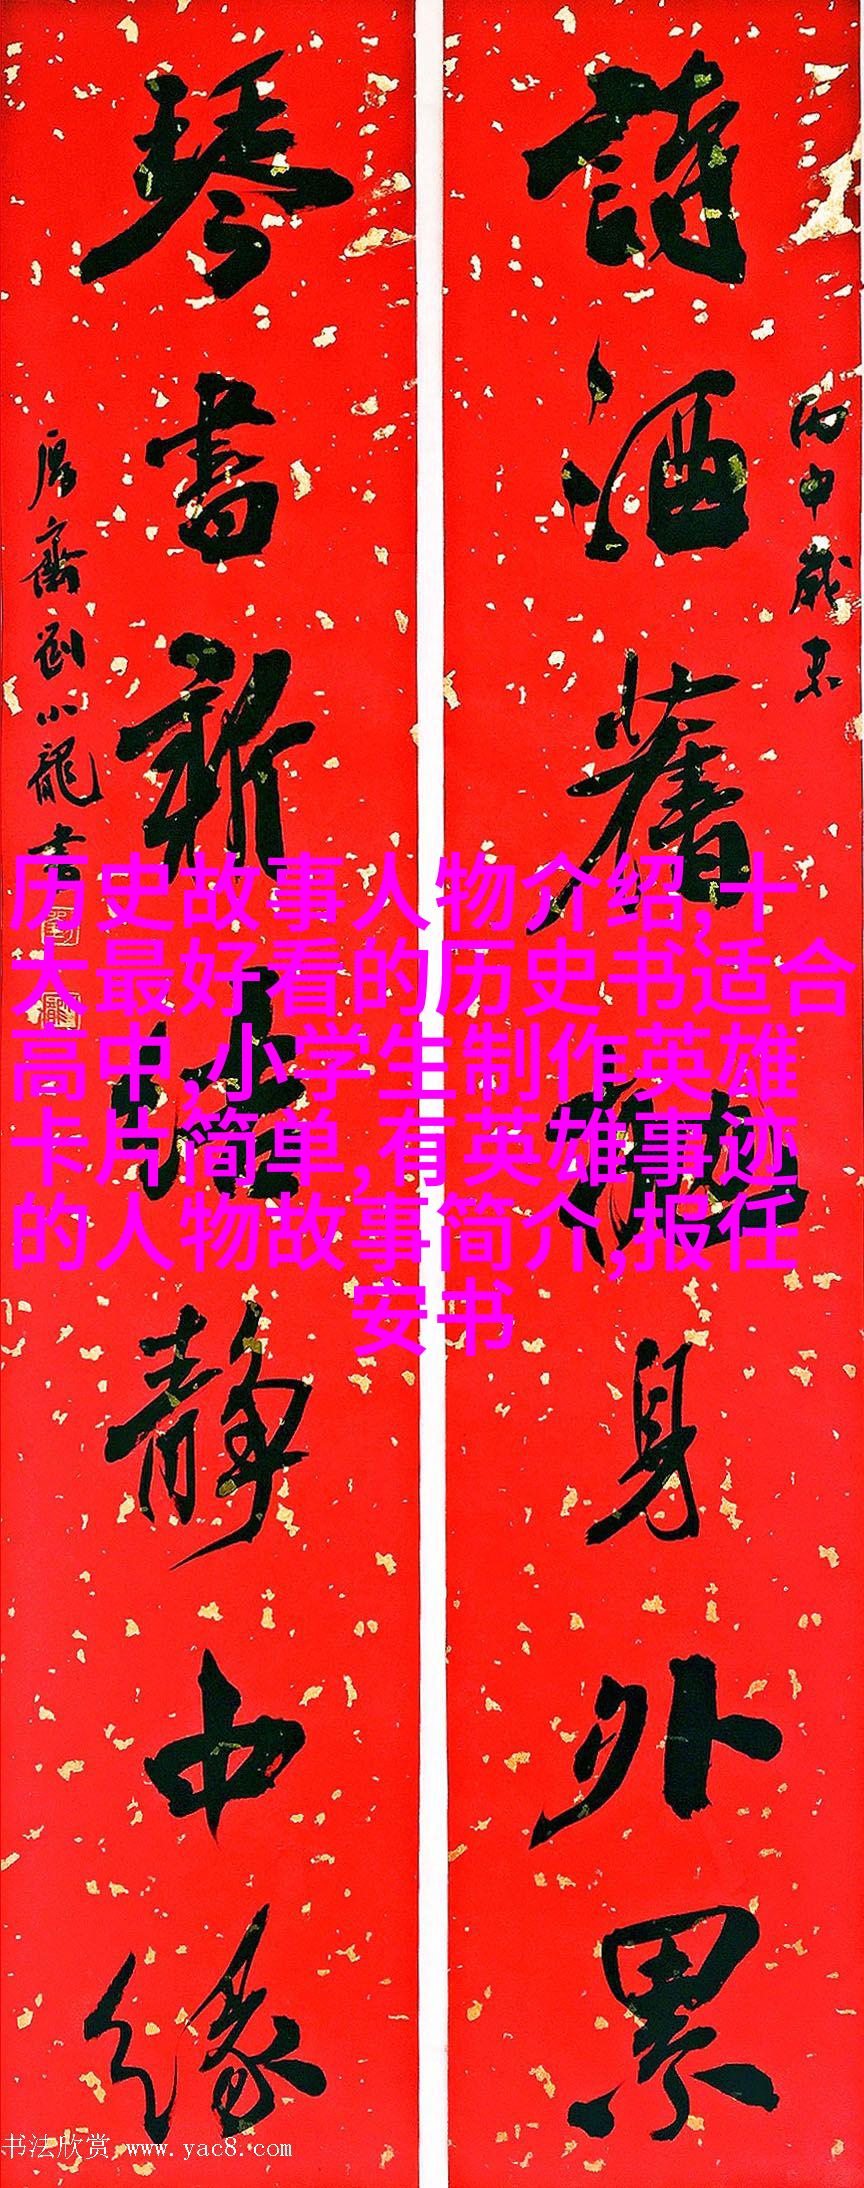 丙申歲末
詩酒舊
身外累
琴書新
靜中緣
厚齋劉小龍書
历史故事人物介绍,十
大最好看的历史书适合
高中,小学生制作英雄
卡片简单,有英雄事迹
的人物故事简介,报任
安书
书法欣赏 www.yac8.com